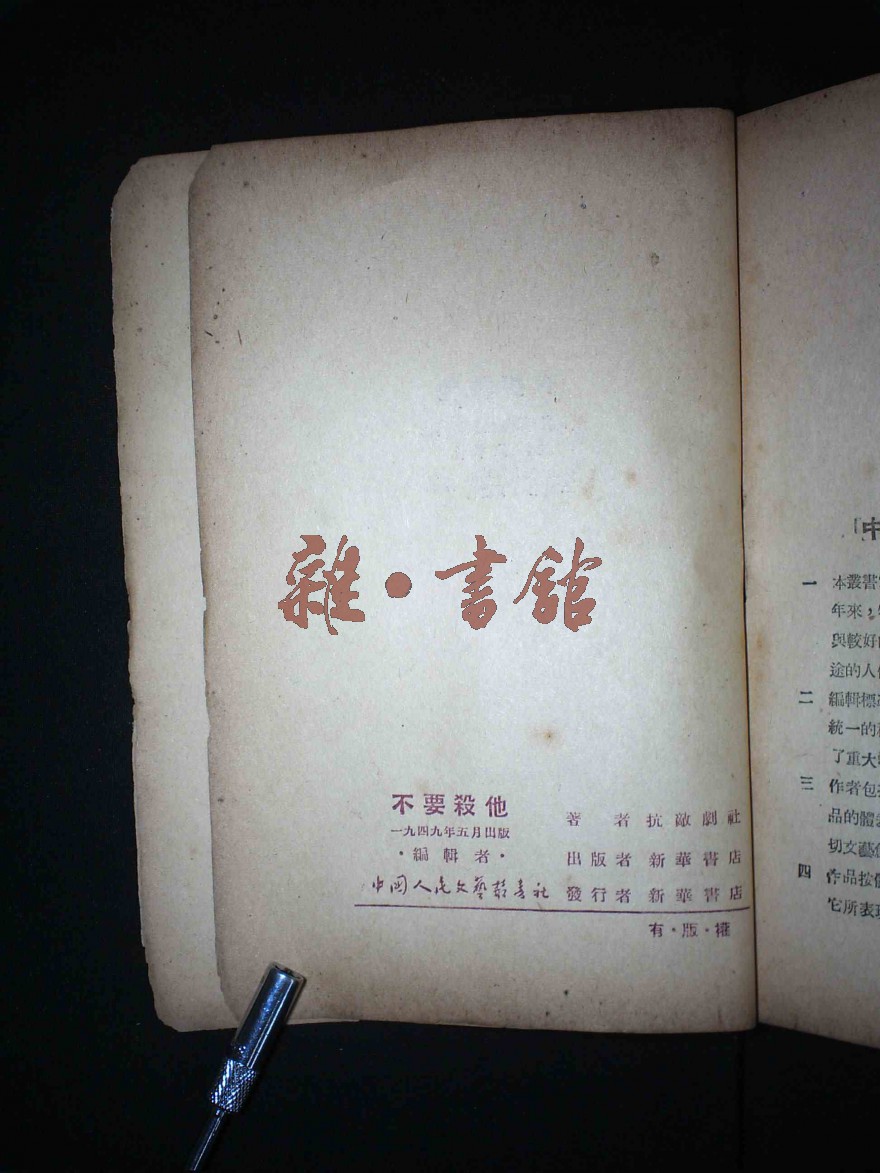 雜·書館
不要殺他
一九四九年五月出版
·編輯者·
中國人民文藝叢書社
著者 抗敵劇社
出版者 新華書店
發行者 新華書店
有·版·權
「中
一 本叢書
年來，
與較好
途的人
二 編輯標
統一的
了重大
三 作者包
品的體
切文藝
四 作品按
它所表